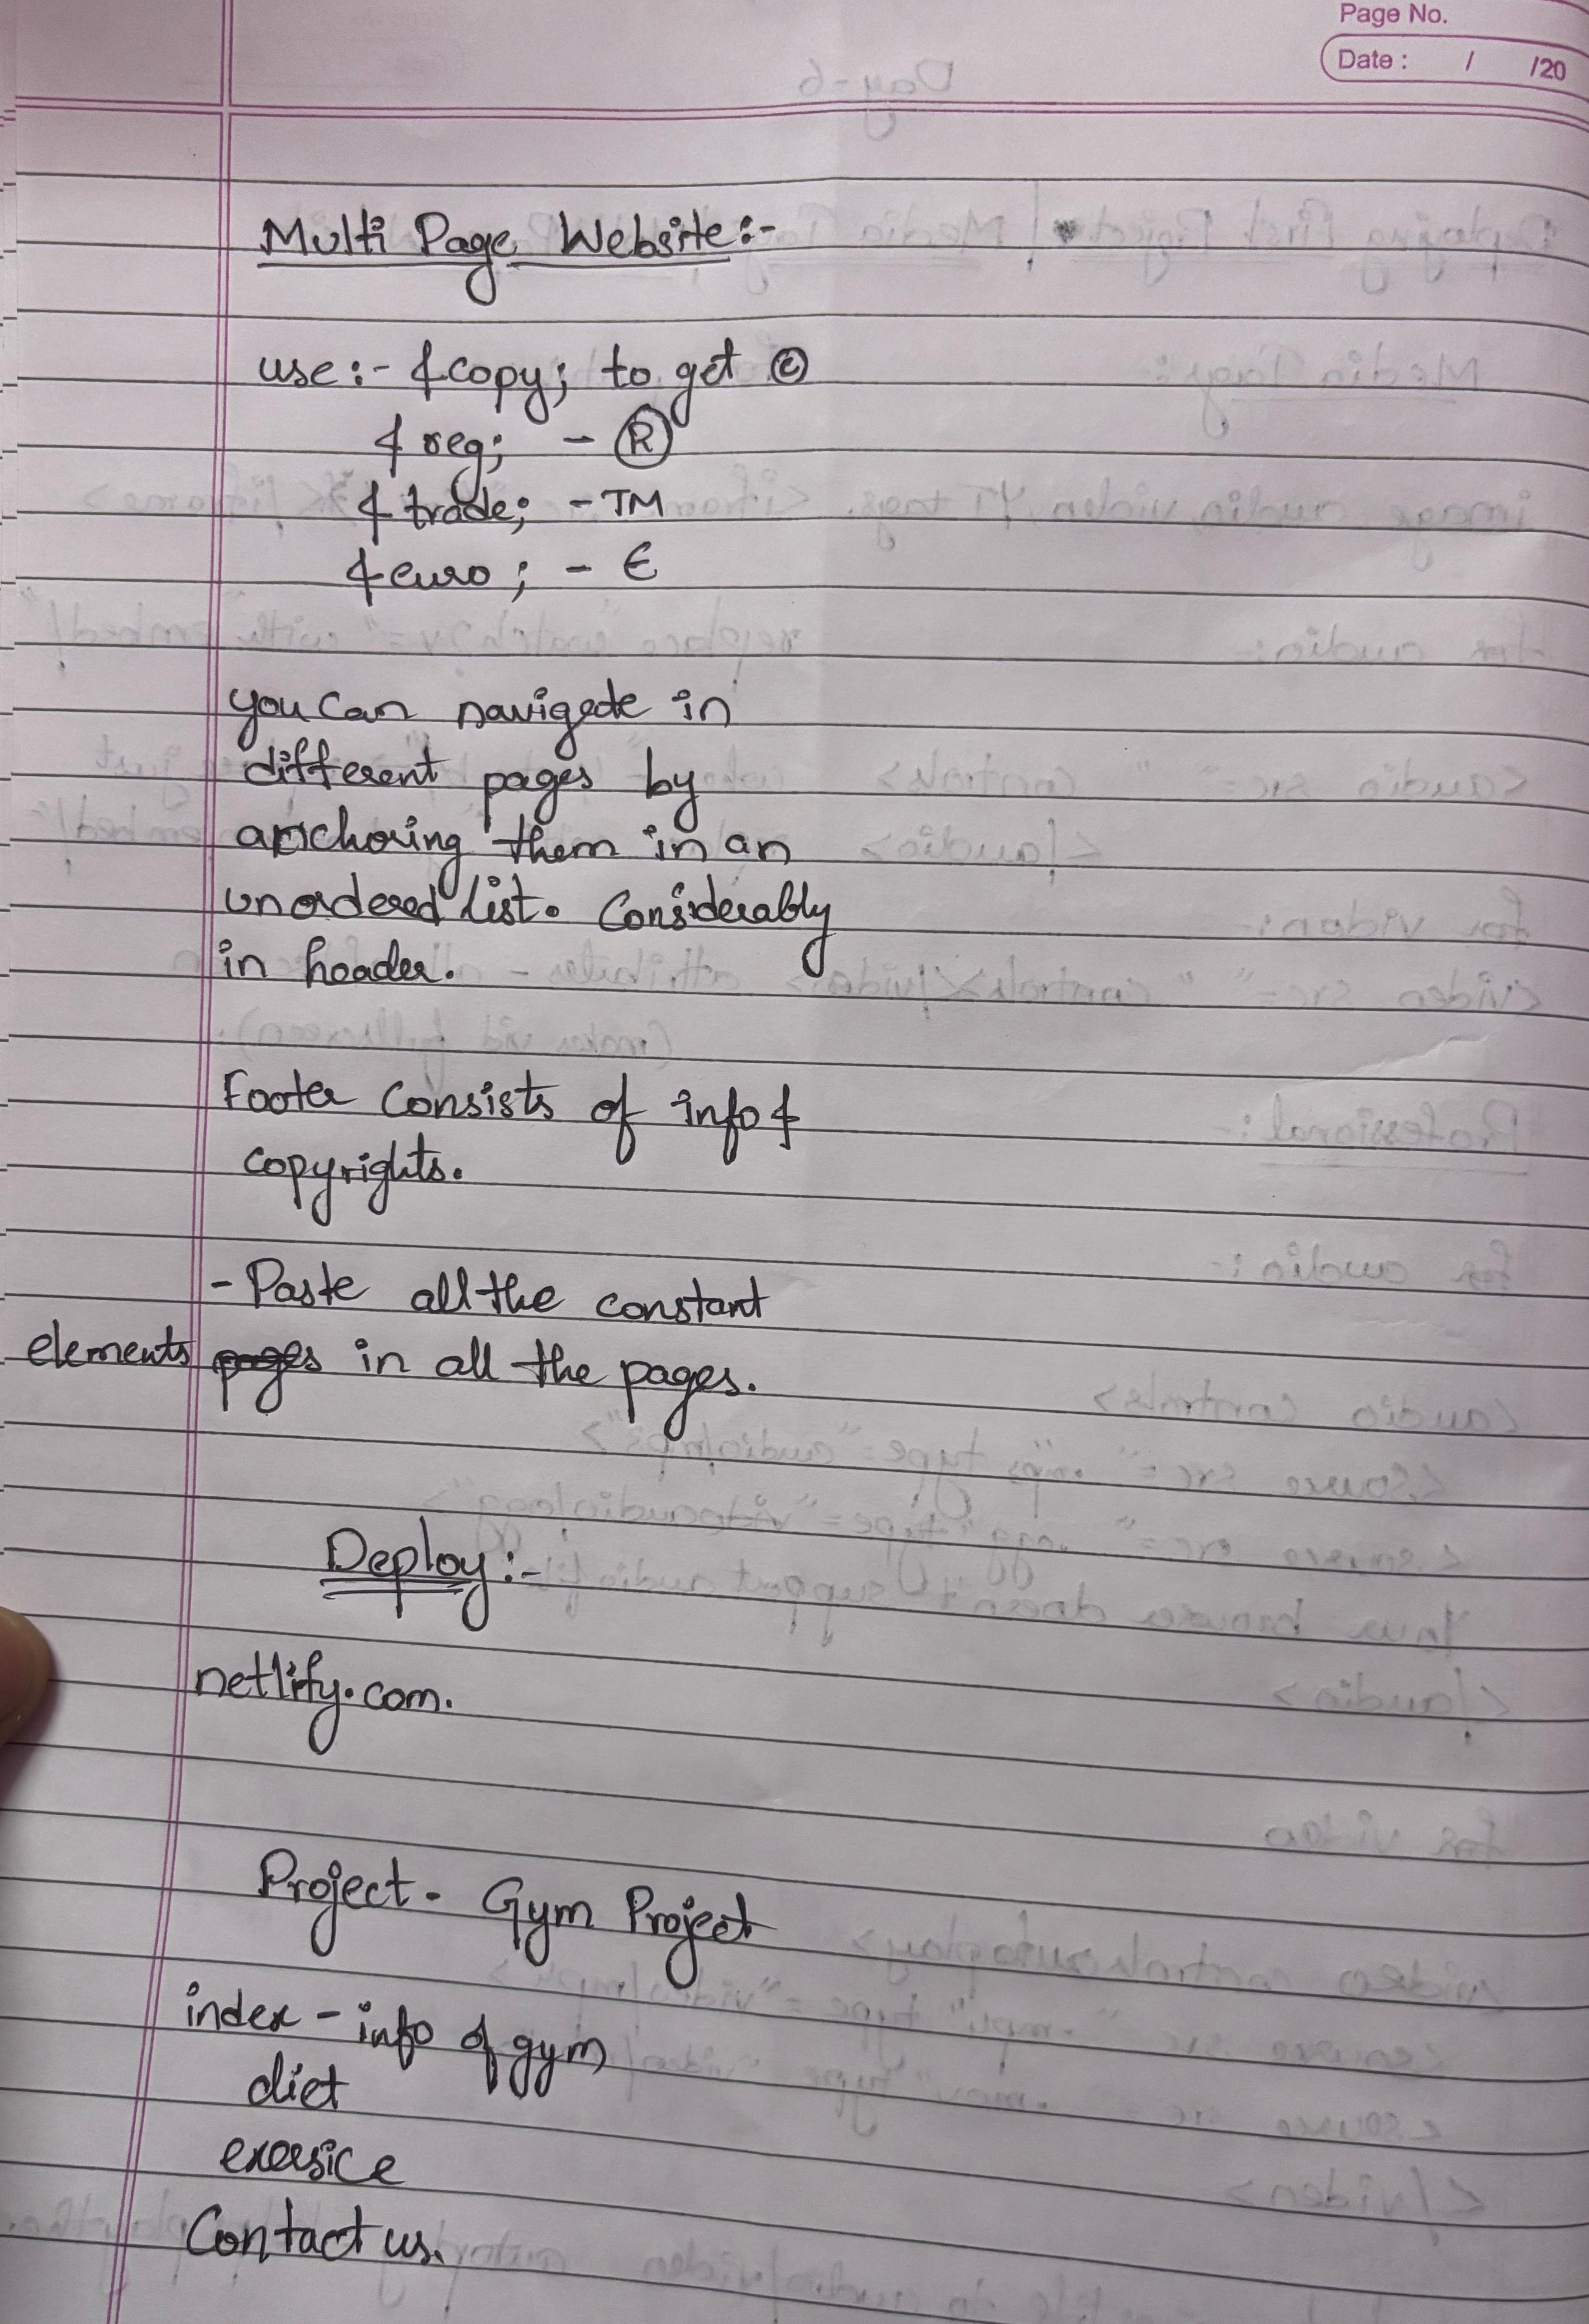 Page No.
Date : / /20
Multi Page Website:-
use:- &copy; to get ©
&reg; - ®
&trade; - TM
&euro; - €
you can navigate in
different pages by
anchoring them in an
unordered list. Considerably
in header.
Footer consists of info &
copyrights.
- Paste all the constant
elements pages in all the pages.
Deploy:-
netlify.com.
Project - Gym Project
index - info of gym
diet
exersice
Contact us.